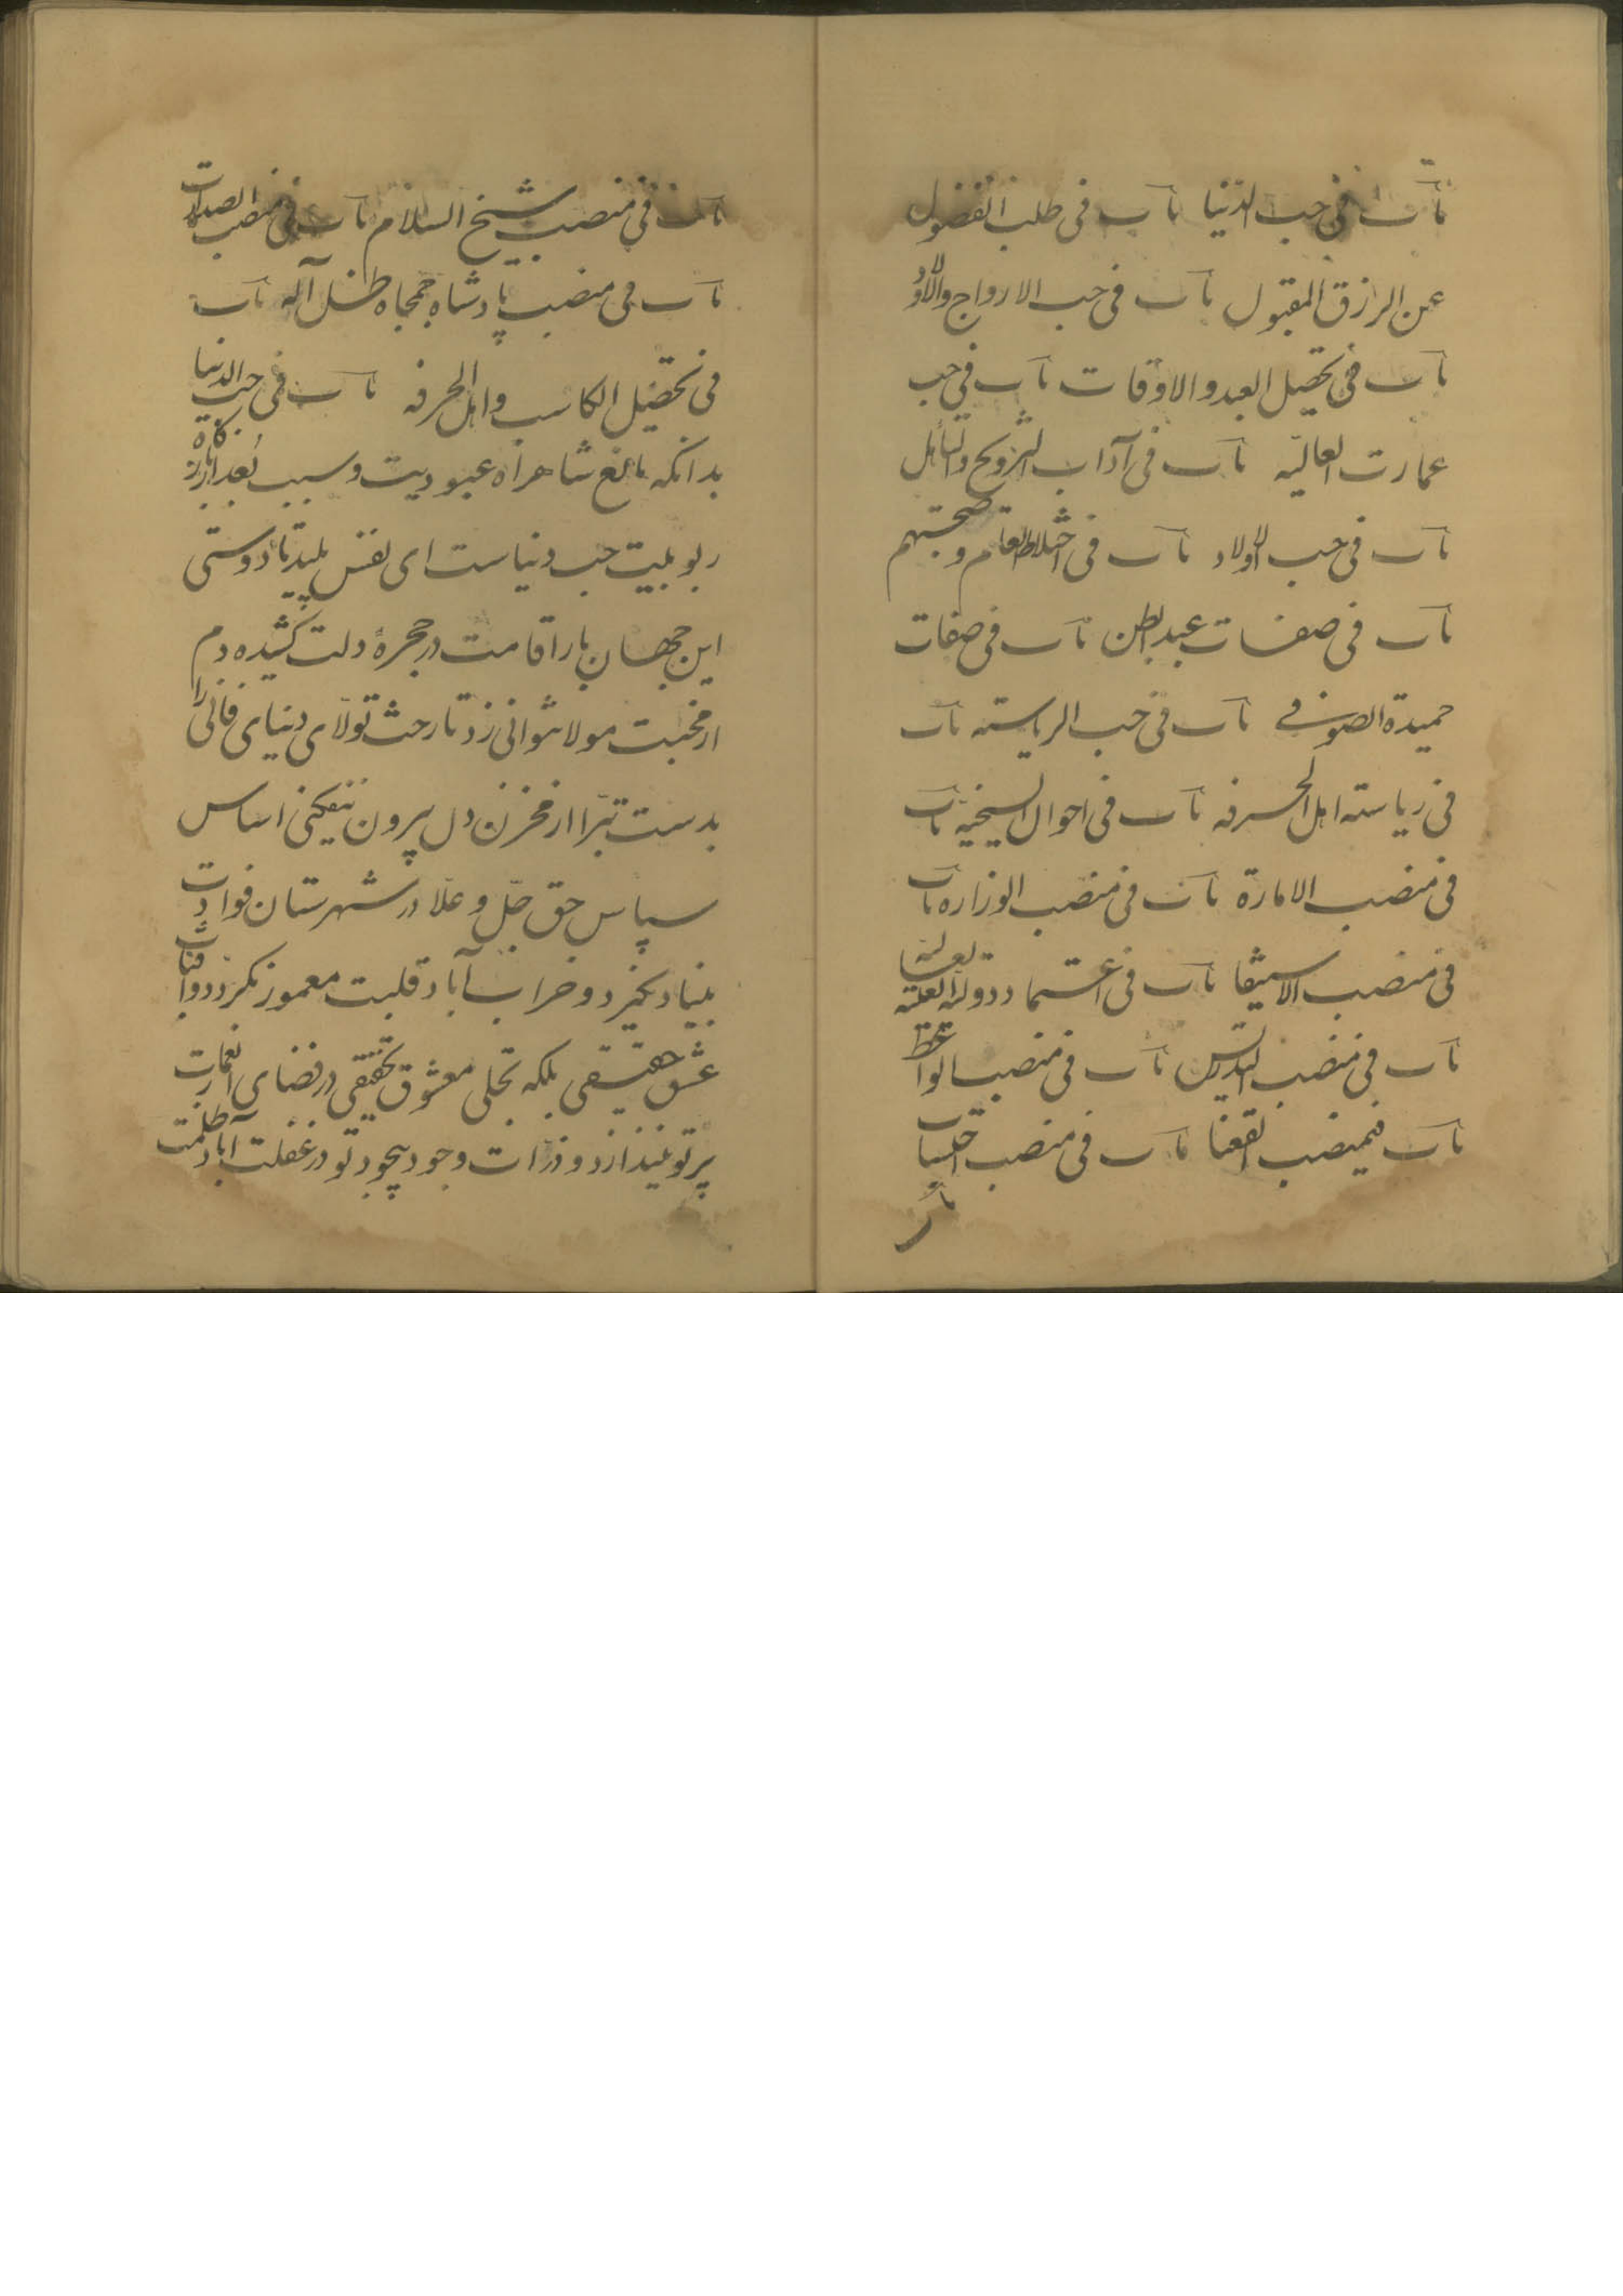 باب فی حب الدنیا باب فی طلب الفضول
عن الرزق المقبول باب فی حب الازواج والاولاد
باب فی تحصیل العبد و الاوقات باب فی حب
عمارت العالیه باب فی آداب التزویج والتأهل
باب فی حب الاولاد باب فی اختلاط العام و صحبتهم
باب فی صفات عبد البطن باب فی صفات
حمیدة الصوفی باب فی حب الریاسته باب
فی ریاسته اهل الحرفه باب فی احوال الشیخیه باب
فی منصب الامارة باب فی منصب الوزاره باب
فی منصب الاستیفا باب فی اعتماد دولة العلیه العالیه
باب فی منصب التدریس باب فی منصب الواعظ
باب فیمنصب القضا باب فی منصب احتساب
باب
باب فی منصب شیخ السلام باب فی منصب الصدارت
باب فی منصب پادشاه جمجاه ظل آله باب
فی تحصیل الکاسب و اهل الحرفه باب فی حب الدنیا
بدانکه مانع شاهراه عبودیت و سبب بعد از بارگاه
ربوبیت حب دنیاست ای نفس پلید تا دوستی
این جهان بار اقامت در حجرهٔ دلت کشیده دم
از محبت مولا نتوانی زد تا رخت تولّای دنیای فانی را
بدست تبرّا از مخزن دل بیرون نیفکنی اساس
سپاس حق جلّ و علا در شهرستان فوادت
بنیاد نگیرد و خراب آباد قلبت معمور نگردد و آفتاب
عشق حقیقی بلکه تجلی معشوق تحقیقی در فضای
پرتو نیندازد و ذرّات وجود بیجود تو در غفلت آباد ظلمت